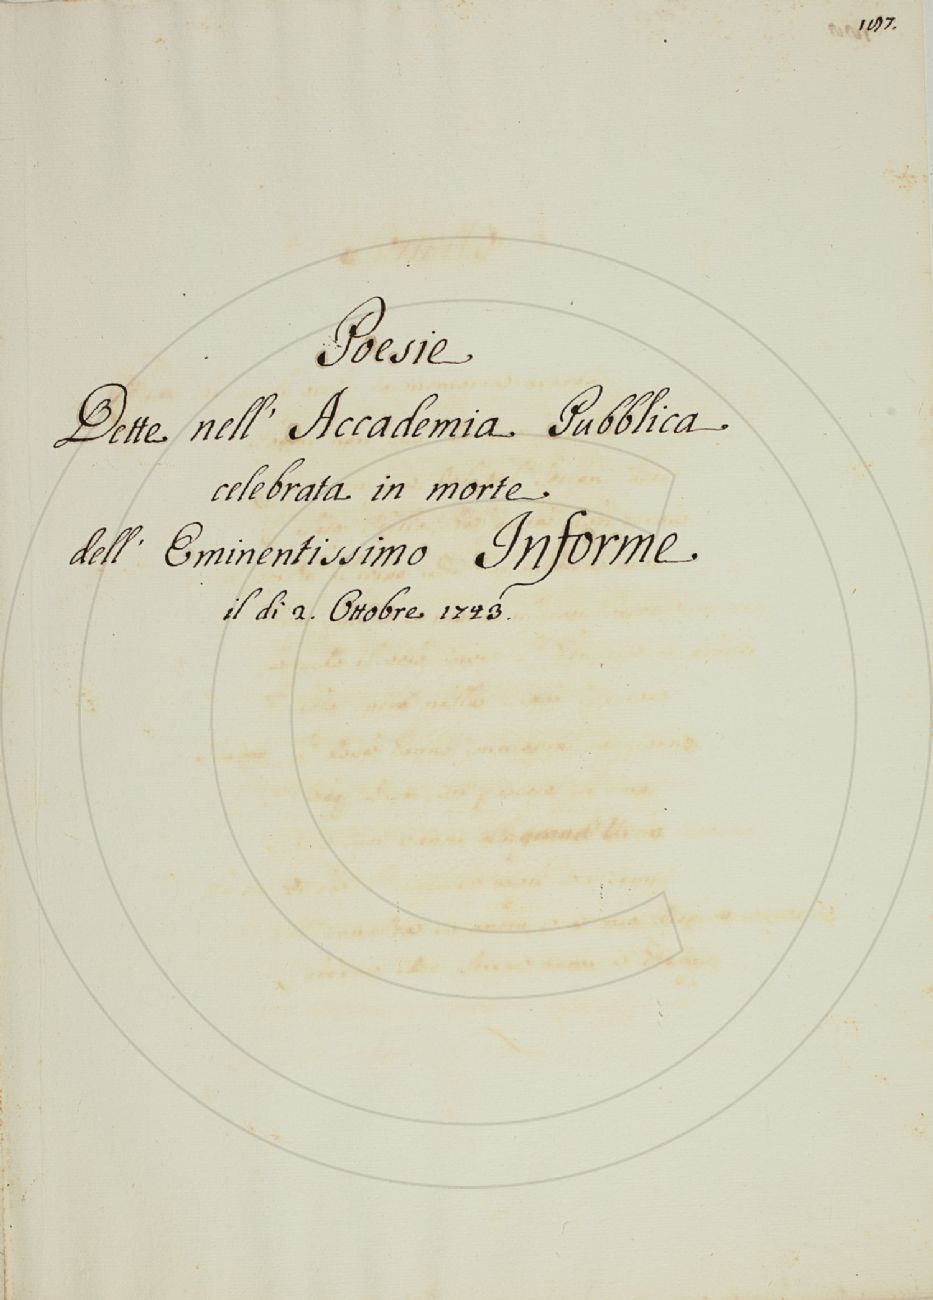 197.
Poesie
Dette nell' Accademia Pubblica
celebrata in morte
dell' Eminentissimo Informe
il di 2. Ottobre 1743.